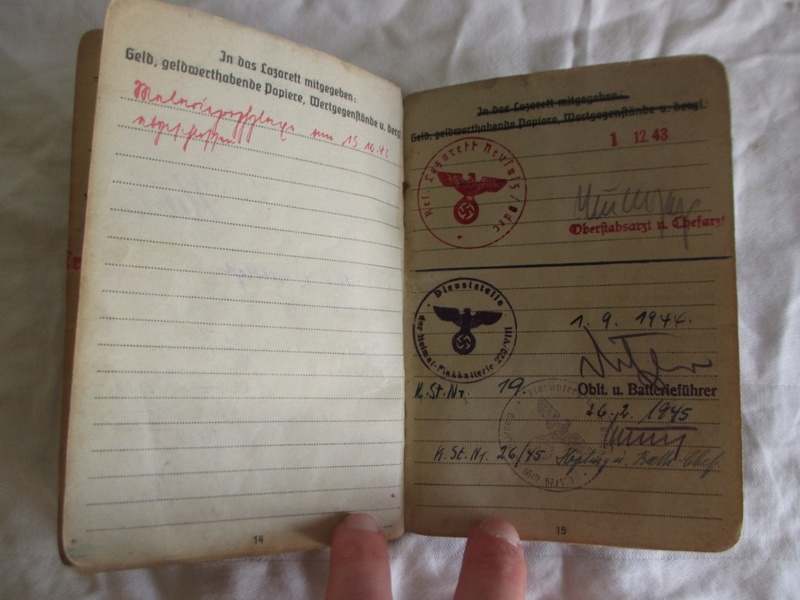 In das Lazarett mitgegeben:
Geld, geldwerthabende Papiere, Wertgegenstände u. dergl.
abgeschlossen
14
In das Lazarett mitgegeben:
Geld, geldwerthabende Papiere, Wertgegenstände u. dergl.
1 12 43
Res. Lazarett
Oberstabsarzt u. Chefarzt
Dienststelle
der Heimat-Flakbatterie 220/VIII
1. 9. 1944.
K. St. Nr. 19.
Oblt. u. Batterieführer
26. 2. 1945
K. St. Nr. 26/45
15